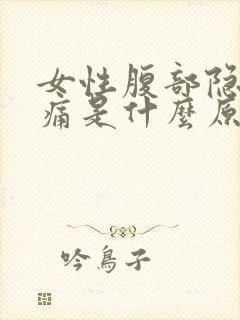 女性腹部隐
痛是什麼原
吟鳥子